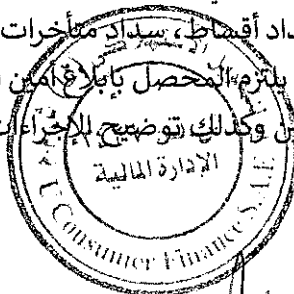 اد أقساط، سداد متأخرات
يلتزم المحصل بإبلاغ أمين
ن وكذلك توضيح للإجراءات
الإدارة المالية
Consumer Finance S.A.E